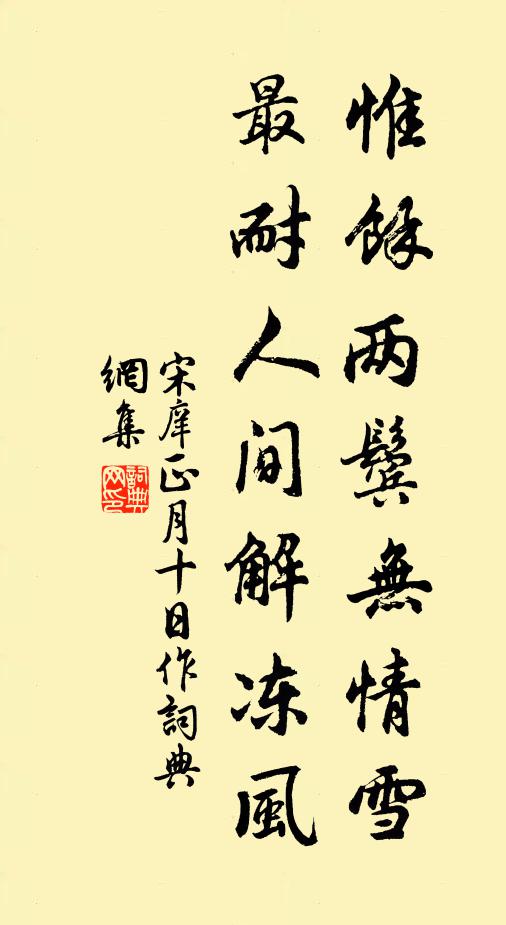 惟餘两鬓無情雪
最耐人间解冻風
宋庠正月十日作詞典
網集
詞典
网印